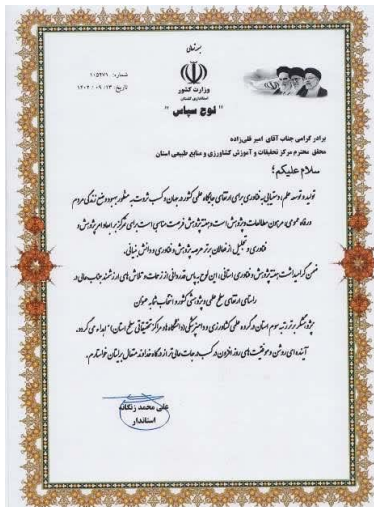 بسمه تعالی
وزارت کشور
استانداری گلستان
" لوح سپاس "
شماره: ۱۰۵۲۷۱
تاریخ: ۱۴۰۲/۰۹/۱۳
برادر گرامی جناب آقای امیر قلی‌زاده
محقق محترم مرکز تحقیقات و آموزش کشاورزی و منابع طبیعی استان
سلام علیکم؛
تولید و توسعه علم، دستیابی به فناوری برای ارتقای جایگاه علمی کشور در جهان و کسب ثروت به منظور بهبود وضع زندگی مردم
و رفاه عمومی، مرهون مطالعات و پژوهش است و هفته پژوهش فرصت مناسبی است برای تمرکز بر ابعاد امر پژوهش و
فناوری و تجلیل از فعالان برتر عرصه پژوهش و فناوری و دانش بنیانی.
ضمن گرامیداشت هفته پژوهش و فناوری استانی، این لوح به پاس قدردانی از زحمات و تلاش های ارزشمند جنابعالی در
راستای ارتقای سطح علمی و پژوهشی کشور و انتخاب شما به عنوان
پژوهشگر برتر رتبه سوم استان در گروه علمی کشاورزی و دامپزشکی (دانشگاه ها و مراکز تحقیقاتی سطح استان) اهداء می گردد.
آینده ای روشن و موفقیت های روز افزون در کسب درجات عالی تر از درگاه خداوند متعال برایتان خواستارم.
علی محمد زنگانه
استاندار